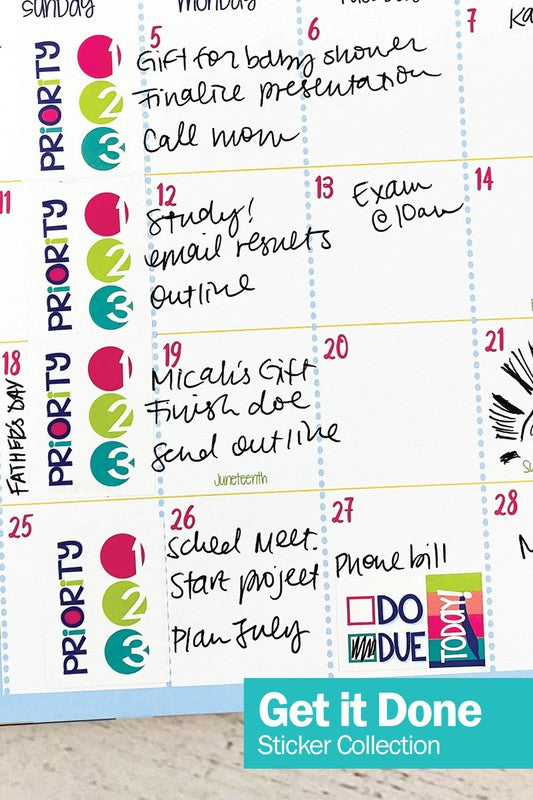 Sunday
Monday
5
6
7
Ka
PRiORiTY
1
2
3
Gift for baby shower
Finalize presentation
Call mom
11
12
13
14
PRiORiTY
1
2
3
Study!
email results
Outline
Exam
@10am
18
FATHER'S DAY
19
20
21
PRiORiTY
1
2
3
Micah's Gift
Finish doc
Send outline
Juneteenth
25
26
27
28
PRiORiTY
1
2
3
Sched Meet.
Start project
Plan July
Phone bill
DO
DUE
TODAY!
Get it Done
Sticker Collection